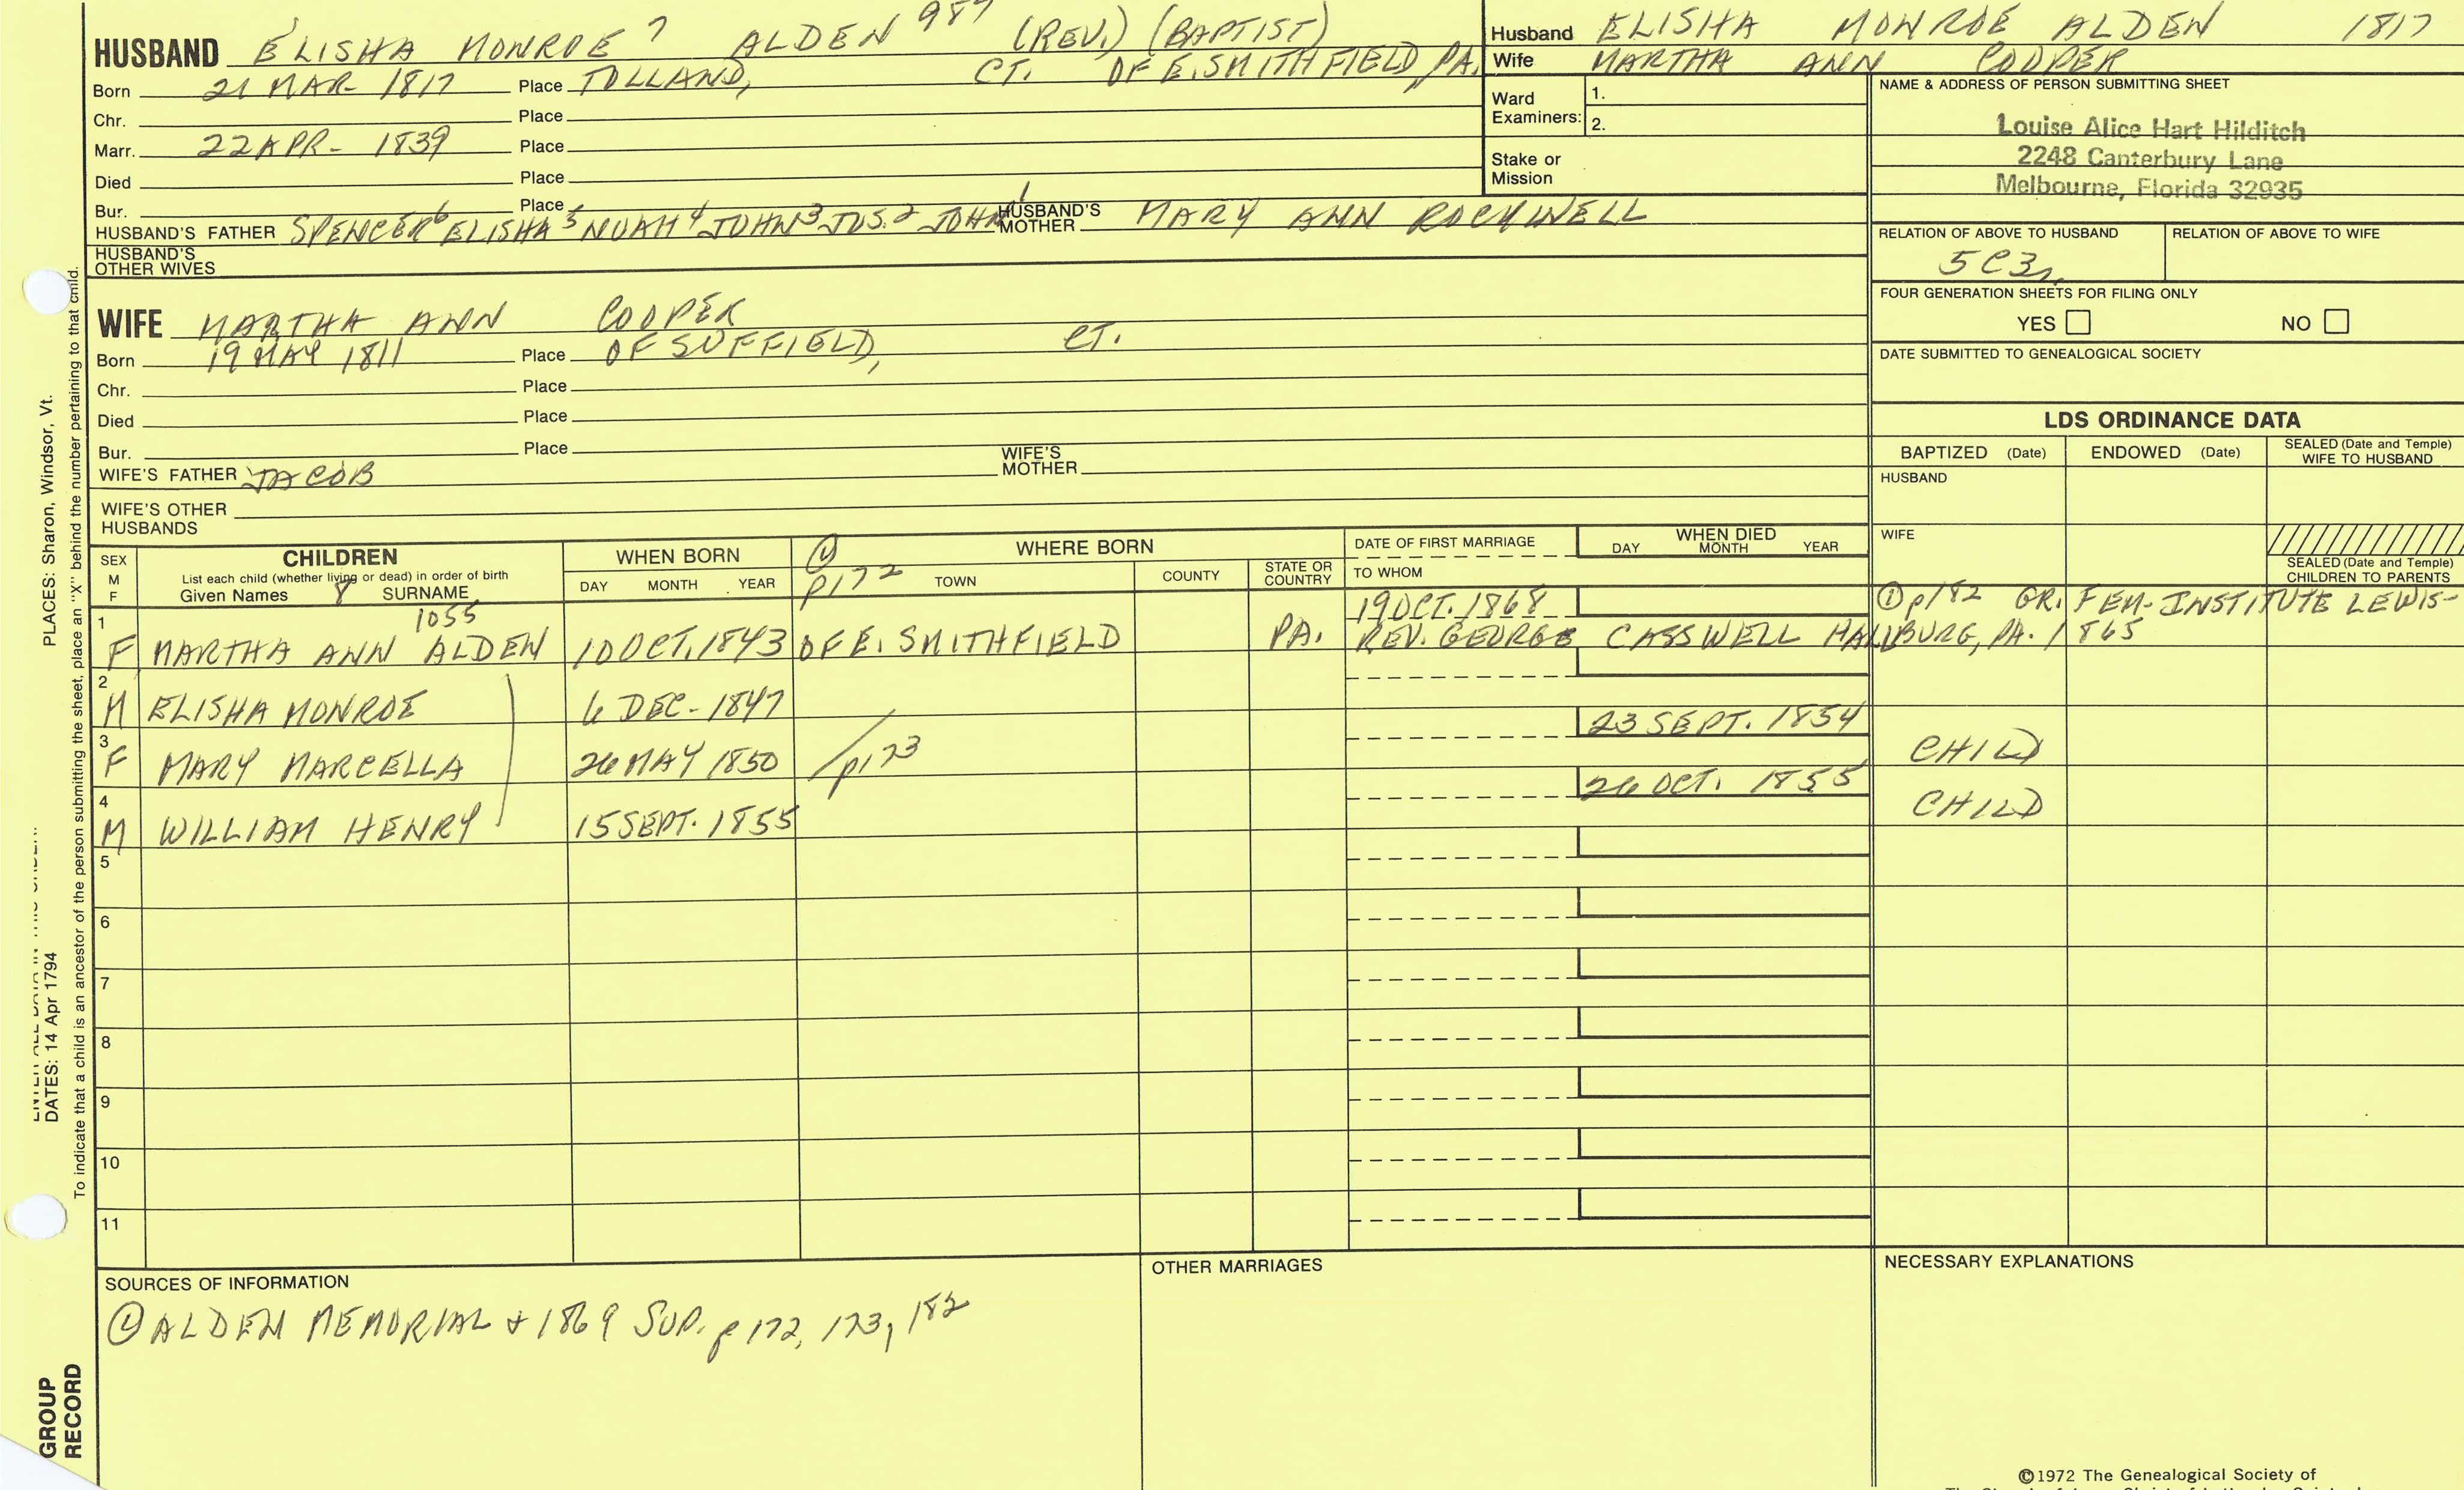 HUSBAND ELISHA MONROE 7 ALDEN 987 (REV.) (BAPTIST)
Born 21 MAR- 1817 Place TOLLAND, CT. OF E. SMITHFIELD PA.
Chr. Place
Marr. 22 APR- 1839 Place
Died Place
Bur. Place
HUSBAND'S FATHER SPENCER 6 ELISHA 5 NOAH 4 JOHN 3 JOS. 2 JOHN 1 HUSBAND'S MOTHER MARY ANN ROCKWELL
HUSBAND'S OTHER WIVES
Husband ELISHA MONROE ALDEN 1817
Wife MARTHA ANN COOPER
Ward Examiners: 1.
2.
Stake or Mission
NAME & ADDRESS OF PERSON SUBMITTING SHEET
Louise Alice Hart Hilditch
2248 Canterbury Lane
Melbourne, Florida 32935
RELATION OF ABOVE TO HUSBAND RELATION OF ABOVE TO WIFE
5C3r
FOUR GENERATION SHEETS FOR FILING ONLY
YES NO
DATE SUBMITTED TO GENEALOGICAL SOCIETY
WIFE MARTHA ANN COOPER
Born 19 MAY 1811 Place OF SUFFIELD, CT.
Chr. Place
Died Place
Bur. Place
WIFE'S FATHER JACOB WIFE'S MOTHER
WIFE'S OTHER HUSBANDS
LDS ORDINANCE DATA
BAPTIZED (Date) ENDOWED (Date) SEALED (Date and Temple) WIFE TO HUSBAND
HUSBAND
WIFE
SEALED (Date and Temple) CHILDREN TO PARENTS
SEX M F
CHILDREN
List each child (whether living or dead) in order of birth
Given Names 8 SURNAME
WHEN BORN
DAY MONTH YEAR
① p172
WHERE BORN
TOWN COUNTY STATE OR COUNTRY
DATE OF FIRST MARRIAGE
TO WHOM
WHEN DIED
DAY MONTH YEAR
1055
1 F MARTHA ANN ALDEN 10 OCT. 1843 OF E. SMITHFIELD PA. 19 OCT. 1868 ① p182 GR. FEM- INSTITUTE LEWIS-
REV. GEORGE CASSWELL BURG, PA. 1865
2 M ELISHA MONROE 6 DEC- 1847
23 SEPT. 1854
3 F MARY MARCELLA 26 MAY 1850 p173 CHILD
26 OCT. 1855
4 M WILLIAM HENRY 15 SEPT. 1855 CHILD
5
6
7
8
9
10
11
SOURCES OF INFORMATION
① ALDEN MEMORIAL + 1869 SUP. p 172, 173, 182
OTHER MARRIAGES
NECESSARY EXPLANATIONS
©1972 The Genealogical Society of
PLACES: Sharon, Windsor, Vt.
DATES: 14 Apr 1794
To indicate that a child is an ancestor of the person submitting the sheet, place an "X" behind the number pertaining to that child.
GROUP
RECORD